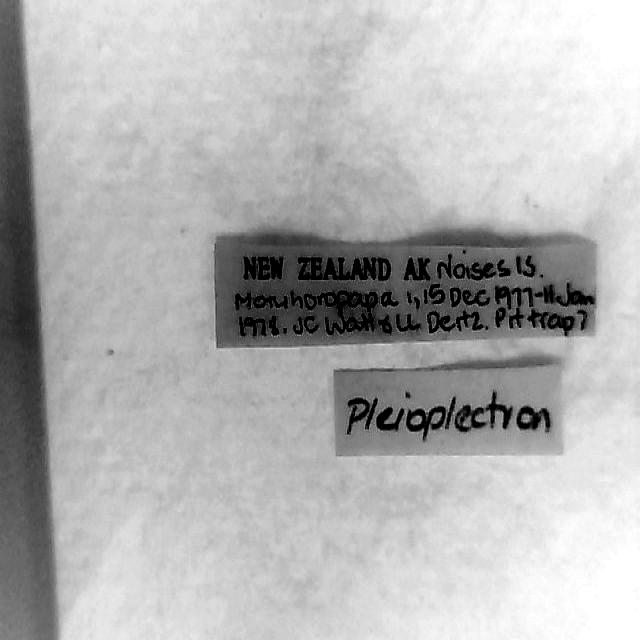 NEW ZEALAND AK Noises Is.
Motuhoropapa I, 15 Dec 1977-11 Jan
1978. JC Watt & LL Deitz. Pit trap 7
Pleioplectron